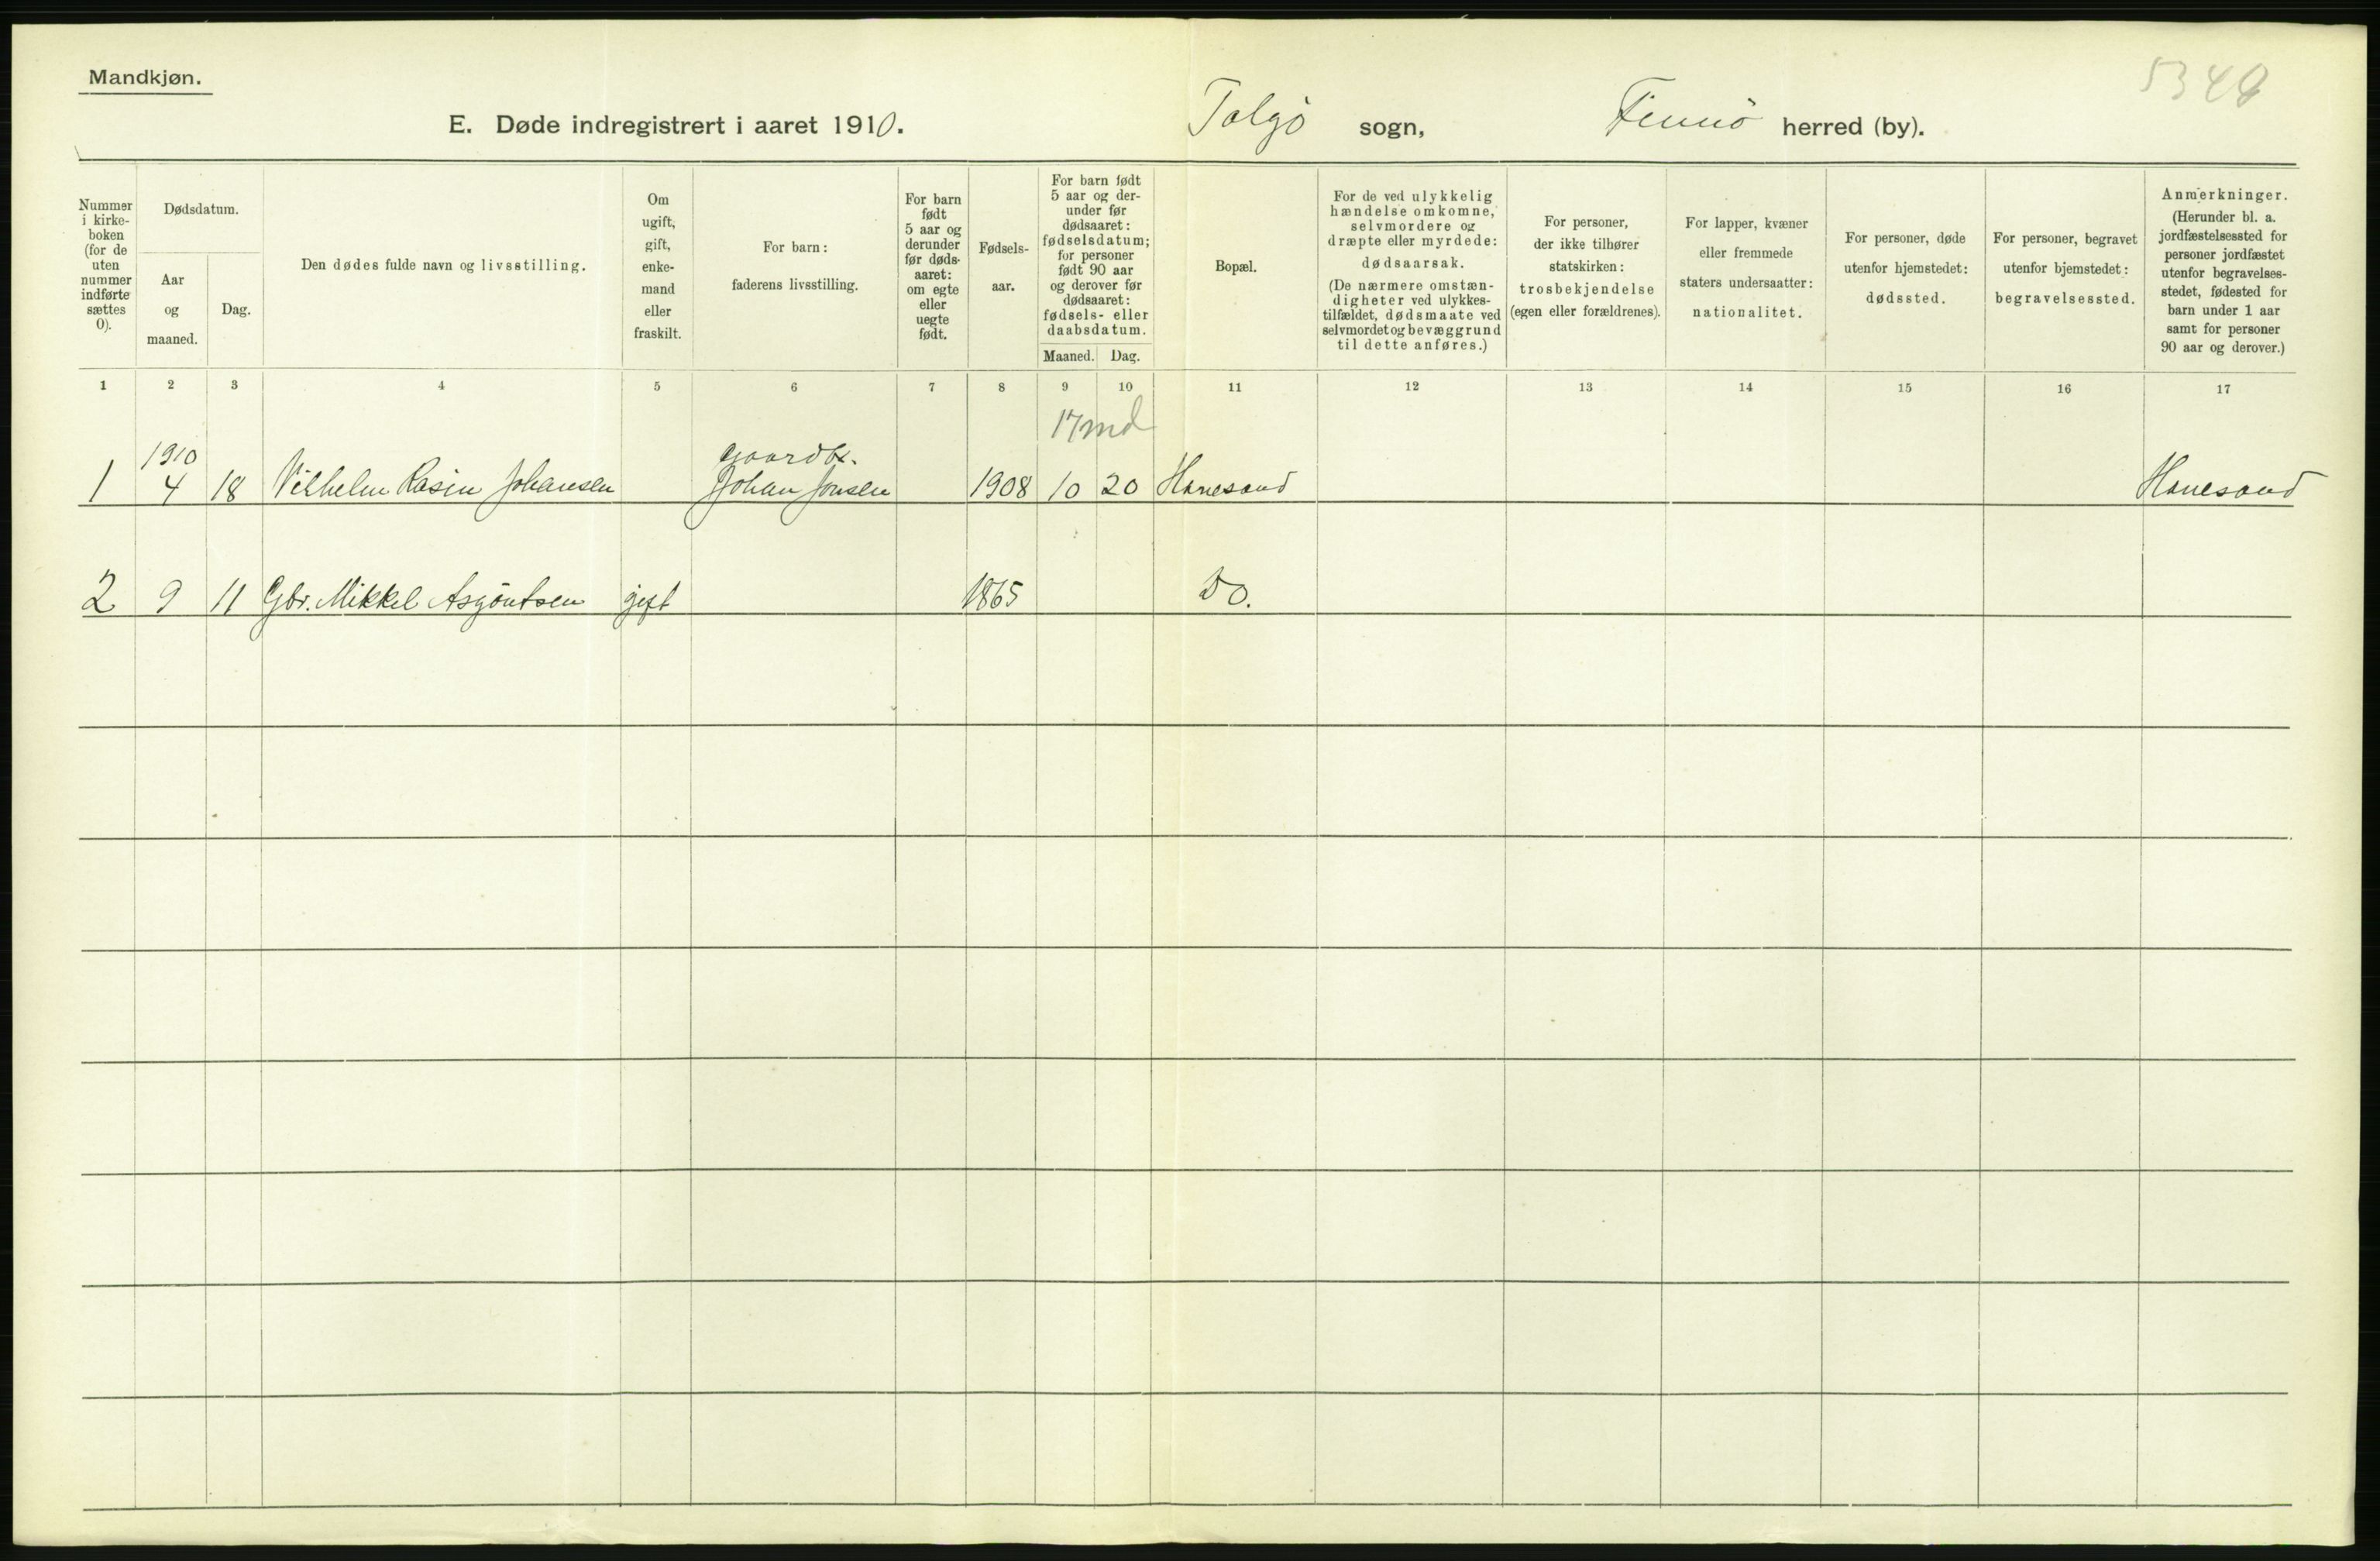 Mandkjøn.
5349
E. Døde indregistrert i aaret 1910. Talgö sogn, Finnö herred (by).
Nummer
i kirke-
boken
(for de
uten
nummer
indførte
sættes
0).
Dødsdatum.
Aar
og
maaned.
Dag.
Den dødes fulde navn og livsstilling.
Om
ugift,
gift,
enke-
mand
eller
fraskilt.
For barn:
faderens livsstilling.
For barn
født
5 aar og
derunder
før døds-
aaret:
om egte
eller
uegte
født.
Fødsels-
aar.
For barn født
5 aar og der-
under før
dødsaaret:
fødselsdatum;
for personer
født 90 aar
og derover før
dødsaaret:
fødsels- eller
daabsdatum.
Maaned. Dag.
Bopæl.
For de ved ulykkelig
hændelse omkomne,
selvmordere og
dræpte eller myrdede:
dødsaarsak.
(De nærmere omstæn-
digheter ved ulykkes-
tilfældet, dødsmaate ved
selvmordet og bevæggrund
til dette anføres.)
For personer,
der ikke tilhører
statskirken:
trosbekjendelse
(egen eller forældrenes).
For lapper, kvæner
eller fremmede
staters undersaatter:
nationalitet.
For personer, døde
utenfor hjemstedet:
dødssted.
For personer, begravet
utenfor hjemstedet:
begravelsessted.
Anmerkninger.
(Herunder bl. a.
jordfæstelsessted for
personer jordfæstet
utenfor begravelses-
stedet, fødested for
barn under 1 aar
samt for personer
90 aar og derover.)
1 2 3 4 5 6 7 8 9 10 11 12 13 14 15 16 17
17 md
1910 gaardbr.
1 4 18 Vilhelm Rasin Johansen Johan Jonsen 1908 10 20 Hanesand Hanesand
2 9 11 Gbr. Mikkel Asgöutsen gift 1865 Do.